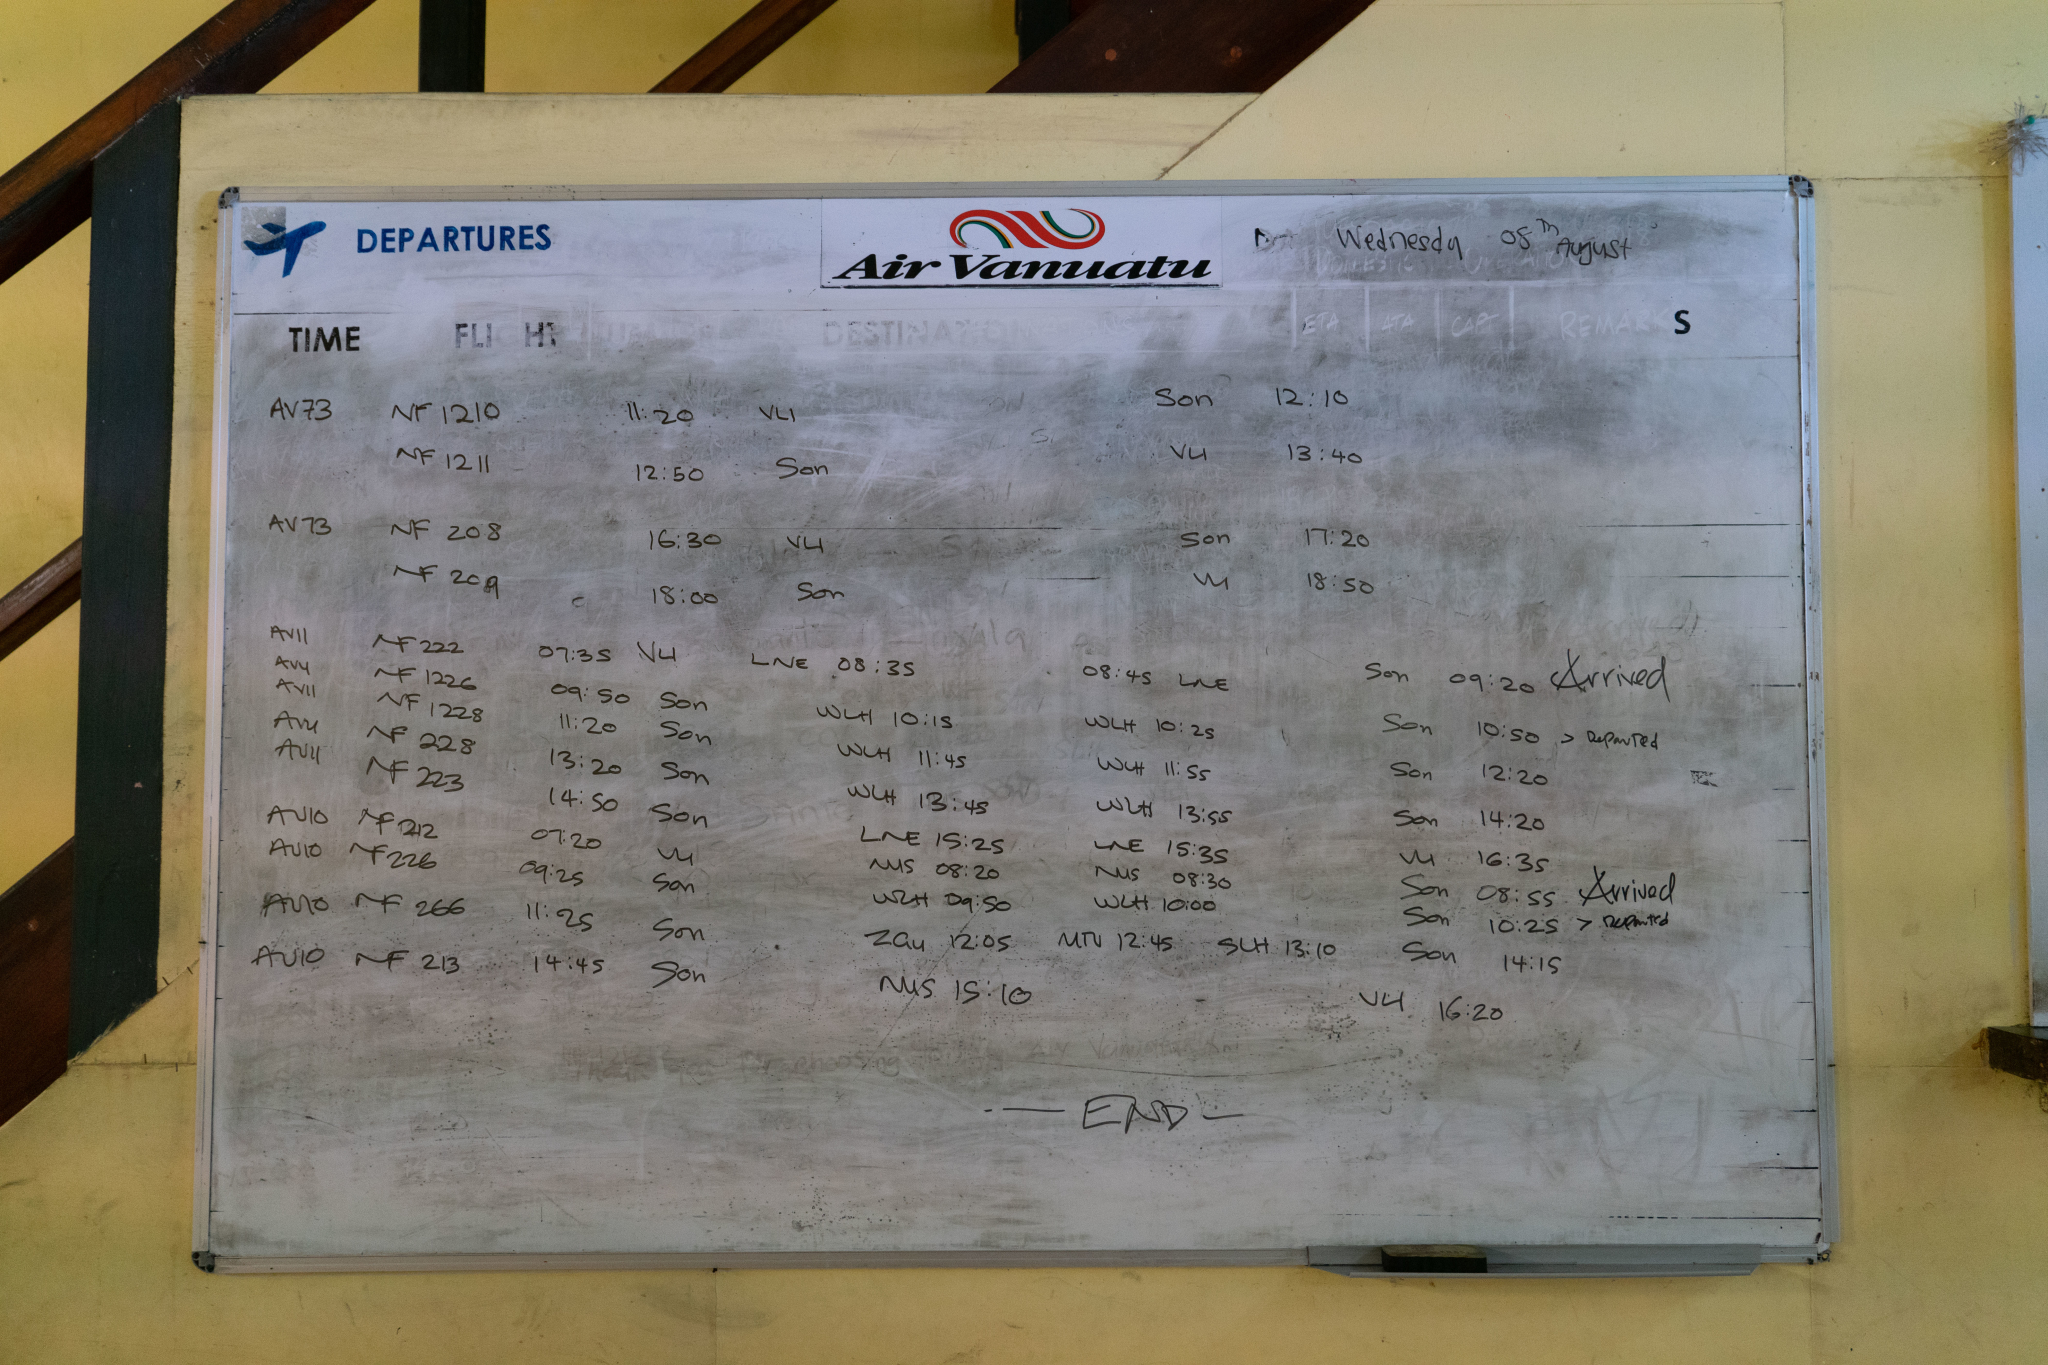 DEPARTURES Air Vanuatu Wednesday 08th August
TIME FLI HT DESTINA ETA ATA CAPT REMARKS
AV73 NF 1210 11:20 VLI Son 12:10
NF 1211 12:50 Son VLI 13:40
AV73 NF 208 16:30 VLI Son 17:20
NF 209 18:00 Son VLI 18:50
AV11 NF 222 07:35 VLI LNE 08:35 08:45 LNE Son 09:20 Arrived
AV11 NF 1226 09:50 Son WLH 10:15 WLH 10:25 Son 10:50 > Departed
AV11 NF 1228 11:20 Son WLH 11:45 WLH 11:55 Son 12:20
AV11 NF 228 13:20 Son WLH 13:45 WLH 13:55 Son 14:20
AV11 NF 223 14:50 Son LNE 15:25 LNE 15:35 VLI 16:35
AV10 NF 212 07:20 VLI NUS 08:20 NUS 08:30 Son 08:55 Arrived
AV10 NF 226 09:25 Son WLH 09:50 WLH 10:00 Son 10:25 > Departed
AV10 NF 266 11:25 Son ZGU 12:05 MTV 12:45 SLH 13:10 Son 14:15
AV10 NF 213 14:45 Son NUS 15:10 VLI 16:20
— END —